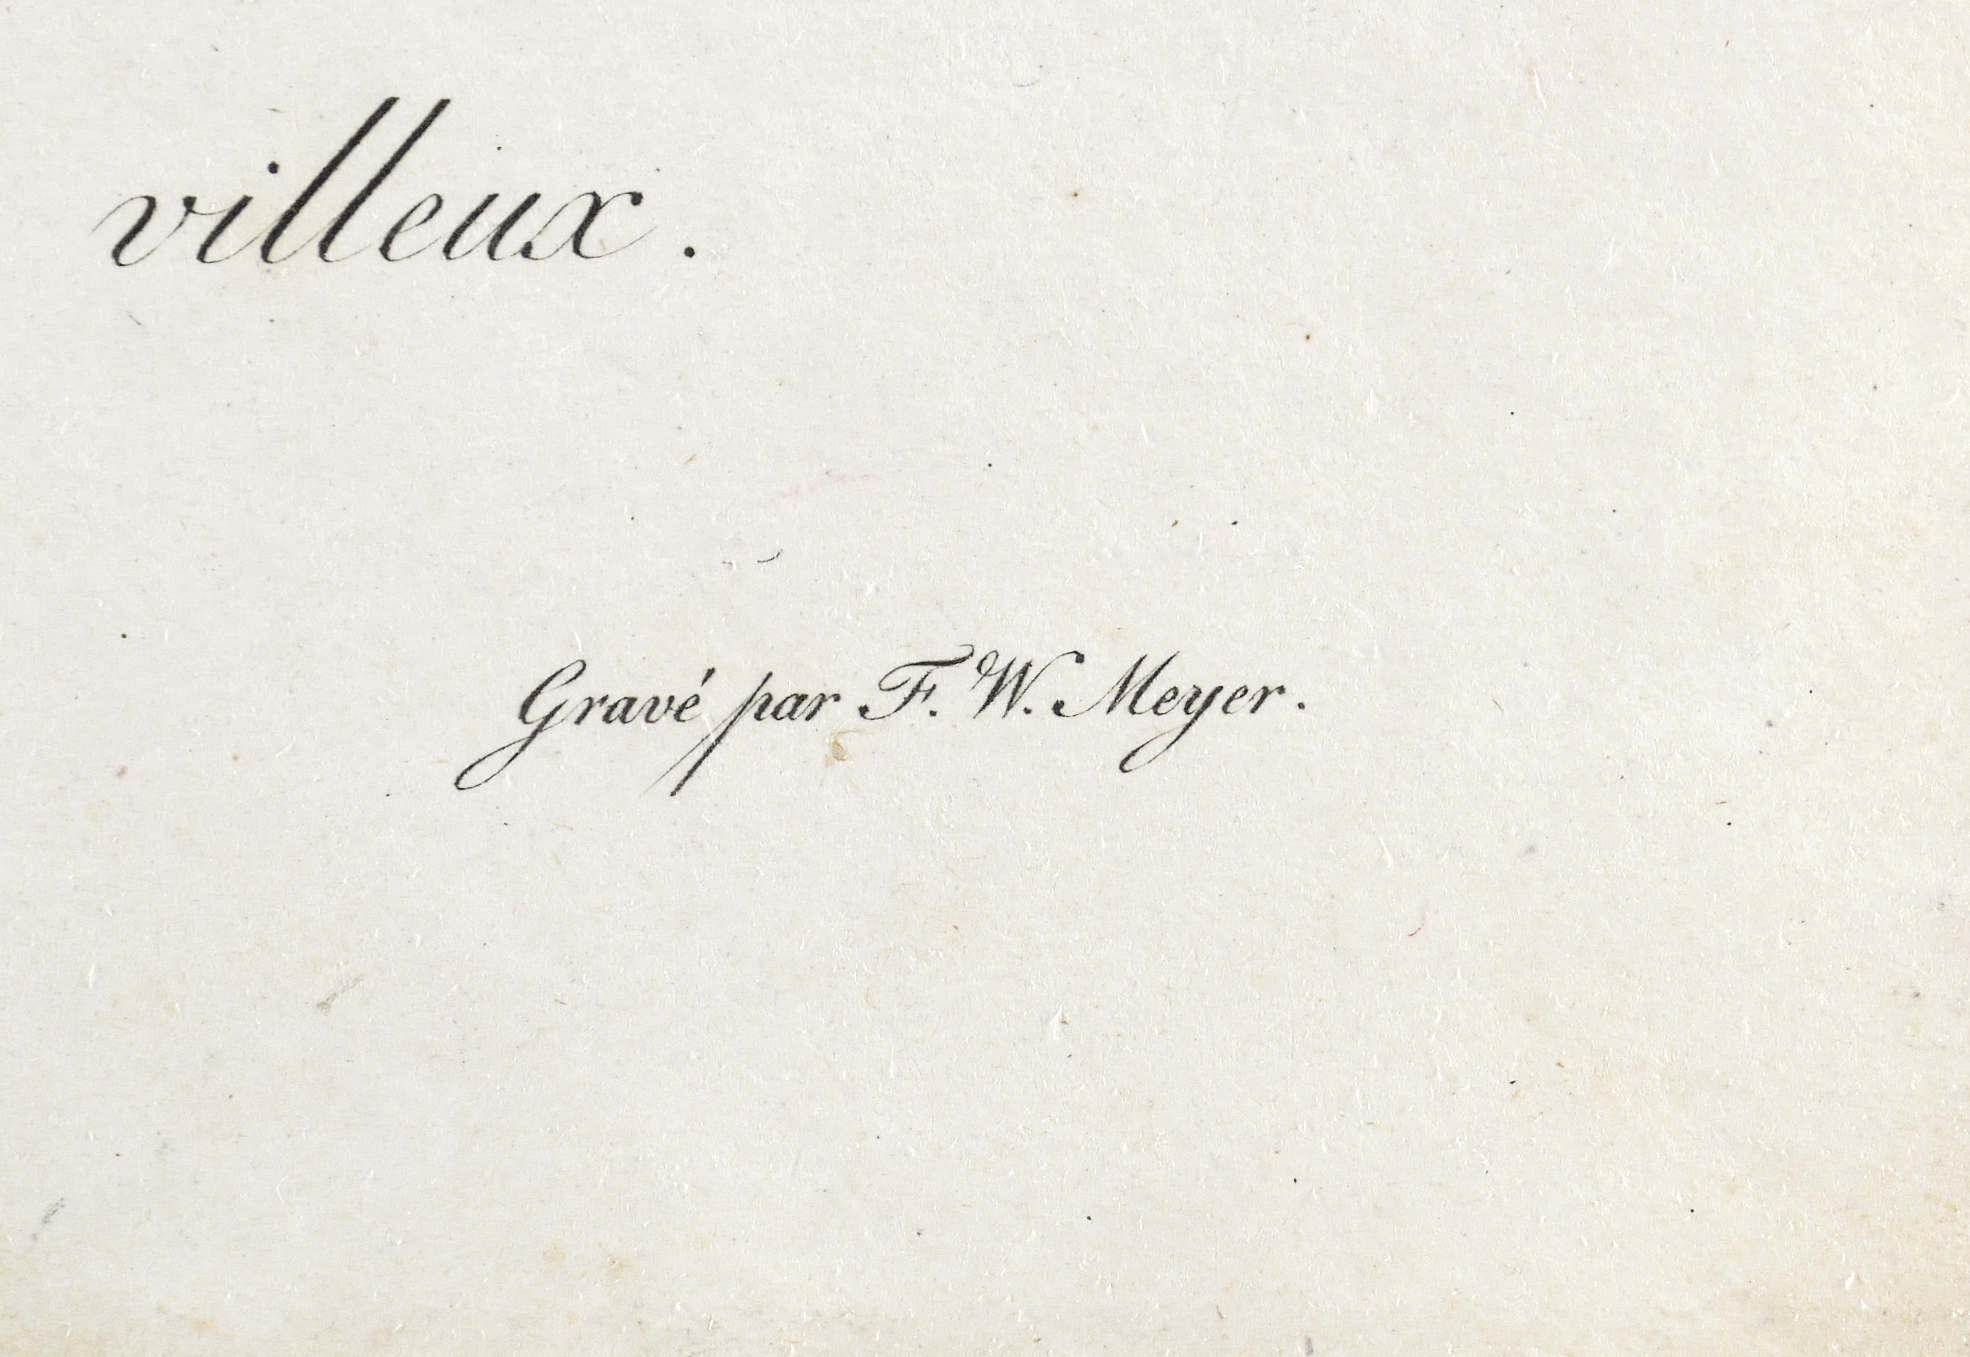 villeux.
Gravé par F. W. Meyer.